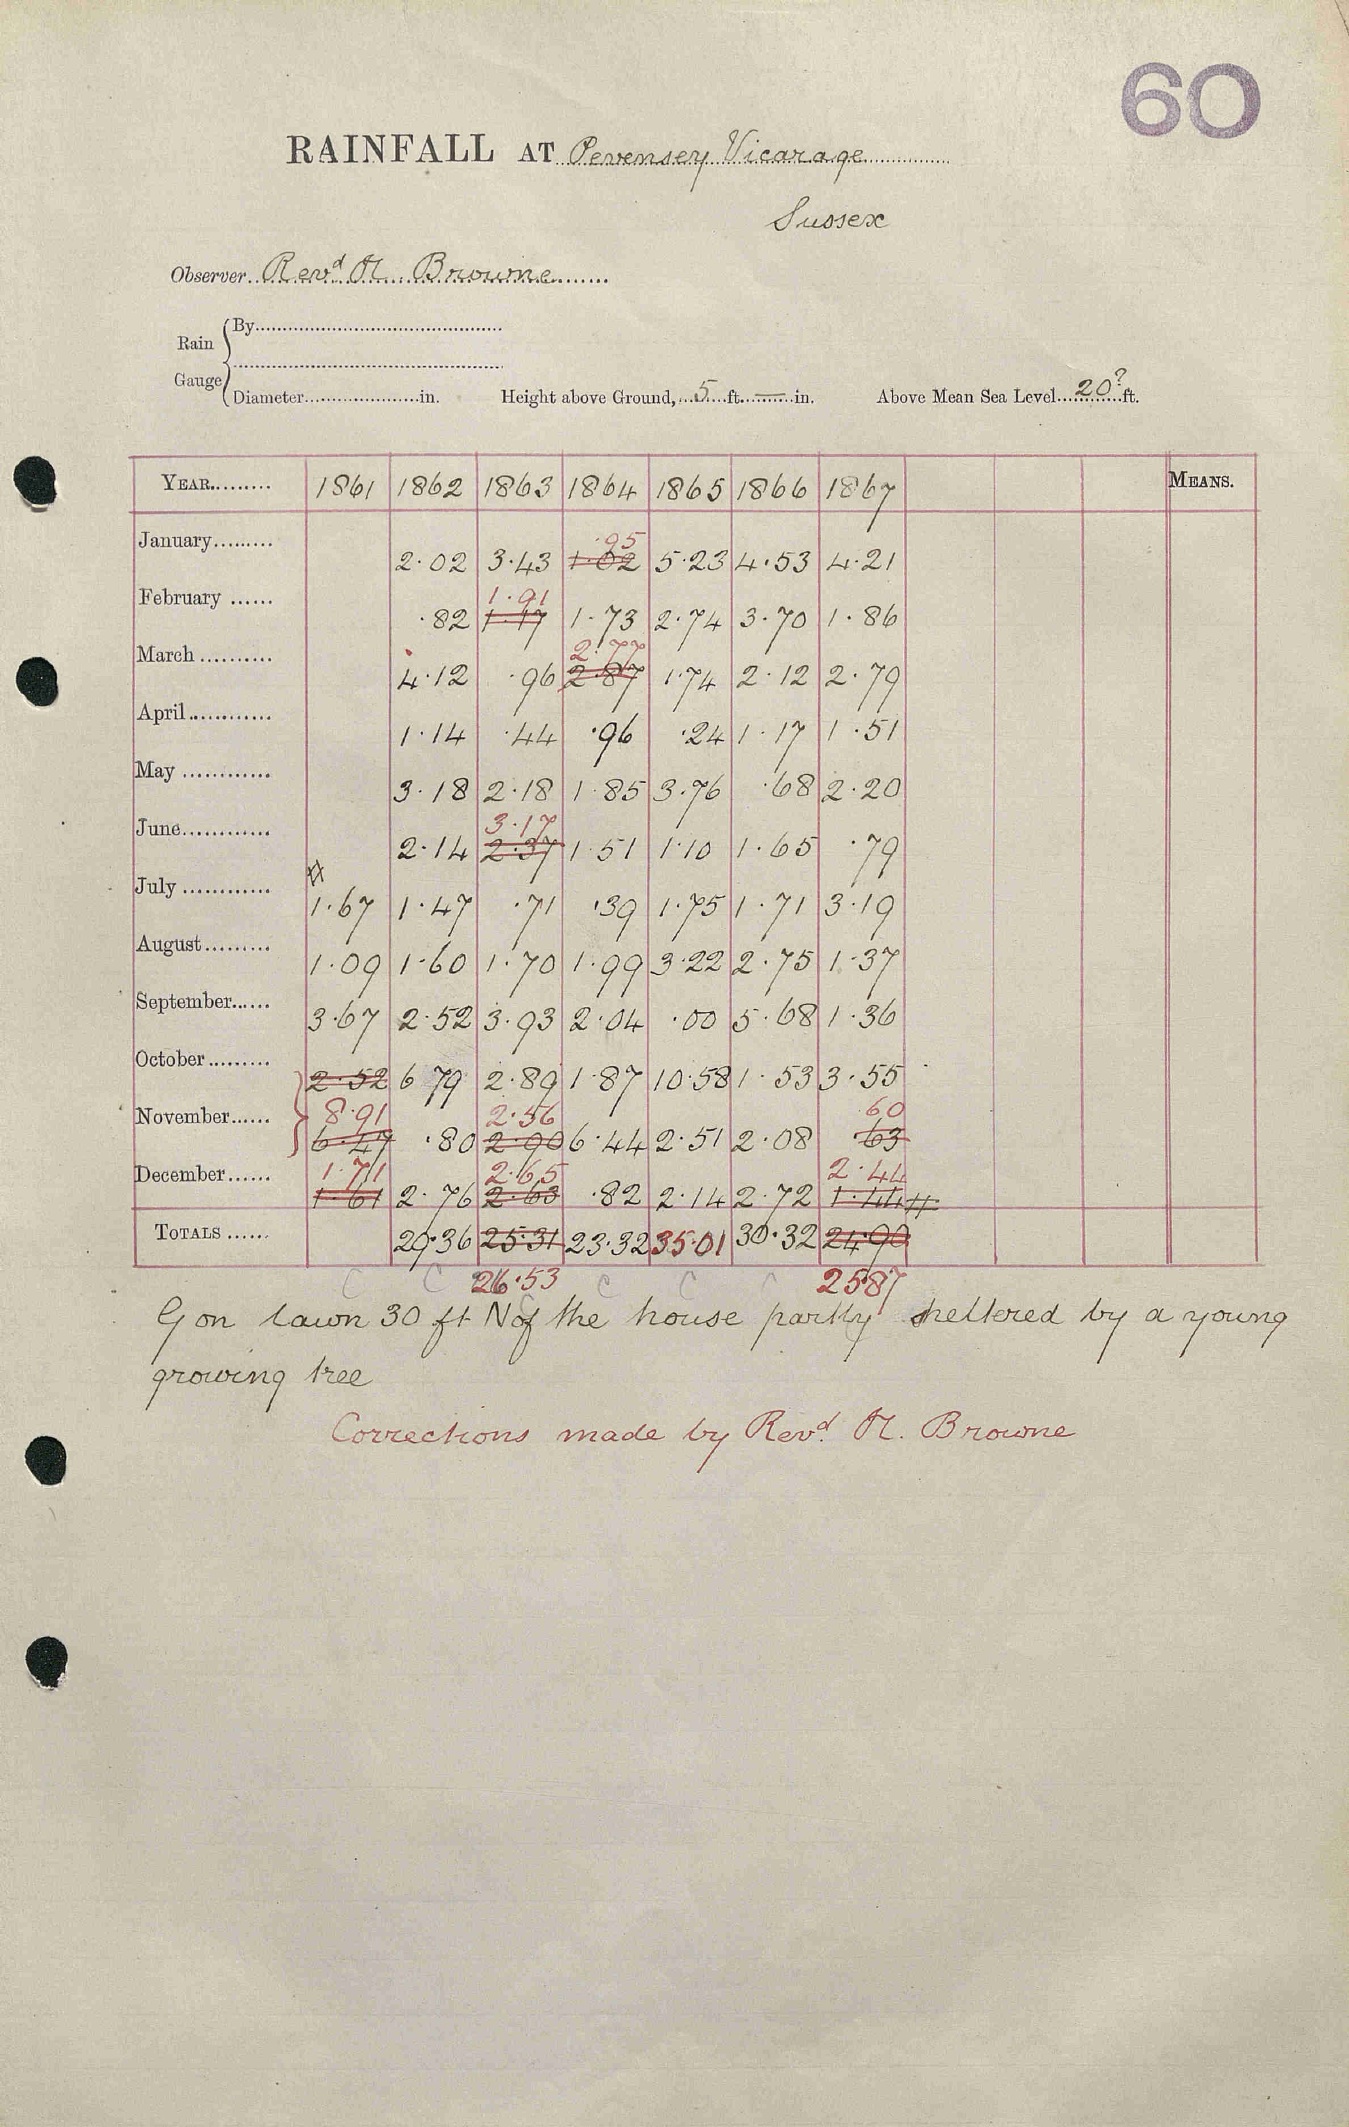 60
RAINFALL AT Pevensey Vicarage
Sussex
Observer Revd H. Browne
Rain Gauge
By
Diameter in. Height above Ground, 5 ft. — in. Above Mean Sea Level 20? ft.
YEAR 1861 1862 1863 1864 1865 1866 1867 MEANS.
·95
January 2·02 3·43 1·02 5·23 4·53 4·21
1·91
February ·82 1·17 1·73 2·74 3·70 1·86
2·77
March 4·12 ·96 2·87 1·74 2·12 2·79
April 1·14 ·44 ·96 ·24 1·17 1·51
May 3·18 2·18 1·85 3·76 ·68 2·20
3·17
June 2·14 2·37 1·51 1·10 1·65 ·79
July 1·67 1·47 ·71 ·39 1·75 1·71 3·19
August 1·09 1·60 1·70 1·99 3·22 2·75 1·37
September 3·67 2·52 3·93 2·04 ·00 5·68 1·36
October 2·52 6 79 2·89 1·87 10·58 1·53 3·55
8·91 2·56 60
November 6·47 ·80 2·90 6·44 2·51 2·08 ·63
1·71 2·65 2·44
December 1·61 2·76 2·63 ·82 2·14 2·72 1·44
TOTALS 29·36 25·31 23·32 35·01 30·32 24·90
C C 26·53 C C C 2587
G on lawn 30 ft N of the house partly sheltered by a young
growing tree
Corrections made by Revd. H. Browne